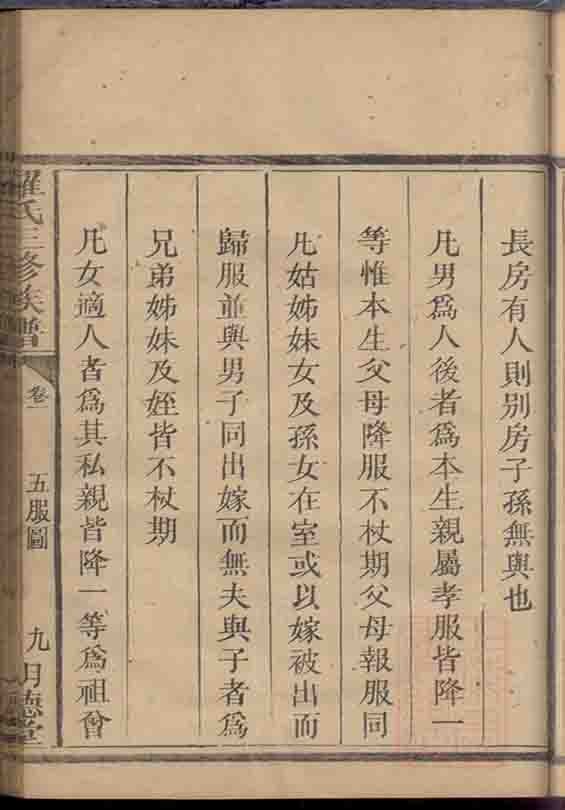 長房有人則別房子孫無與也
凡男爲人後者爲本生親屬孝服皆降一
等惟本生父母降服不杖期父母報服同
凡姑姊妹女及孫女在室或以嫁被出而
歸服並與男子同出嫁而無夫與子者爲
兄弟姊妹及姪皆不杖期
凡女適人者爲其私親皆降一等爲祖曾
羅氏三修族譜
卷一
五服圖
九
德堂